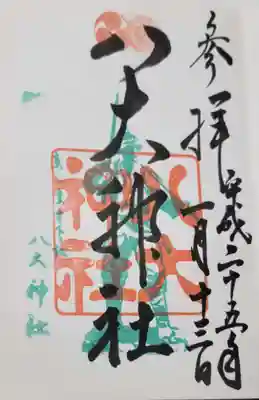 参拝 平成二十五年
一月十三日
八大神社
八大
神社
八大神社